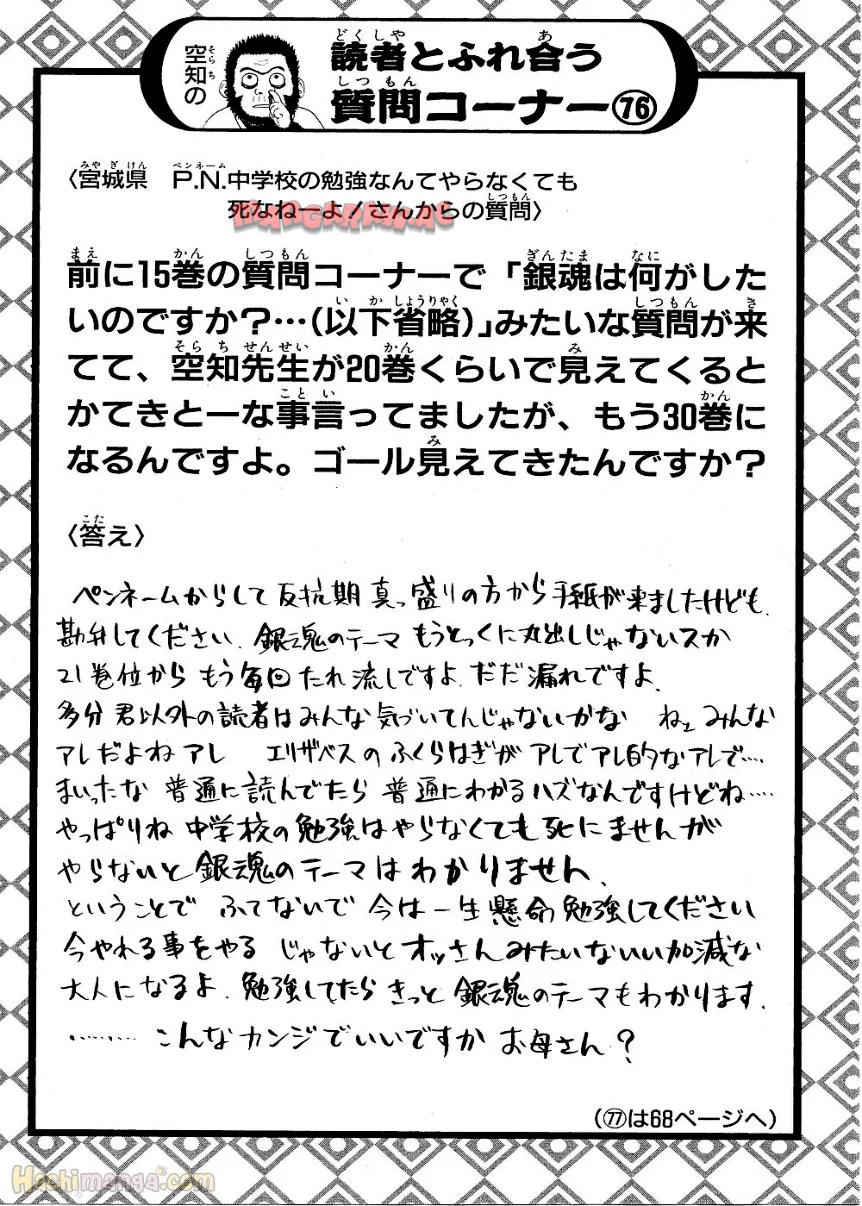 空知の
読者とふれ合う
質問コーナー76
〈宮城県　P.N.中学校の勉強なんてやらなくても
死なねーよ!さんからの質問〉
MANGARAW.AC
前に15巻の質問コーナーで「銀魂は何がした
いのですか？…(以下省略)」みたいな質問が来
てて、空知先生が20巻くらいで見えてくると
かてきとーな事言ってましたが、もう30巻に
なるんですよ。ゴール見えてきたんですか？
〈答え〉
ペンネームからして反抗期真っ盛りの方から手紙が来ましたけども、
勘弁してください、銀魂のテーマ もうとっくに丸出しじゃないスか
21巻位から もう毎回たれ流しですよ、だだ漏れですよ、
多分 君以外の読者はみんな気づいてんじゃないかな　ねェみんな
アレだよねアレ　エリザベスのふくらはぎが アレでアレ的なアレで….
まいったな 普通に読んでたら 普通にわかるハズなんですけどね….
やっぱりね 中学校の勉強はやらなくても死にませんが
やらないと銀魂のテーマはわかりません、
ということで ふてないで 今は一生懸命勉強してください
今やれる事をやる じゃないとオッさんみたいないい加減な
大人になるよ、勉強してたら きっと 銀魂のテーマもわかります、
……… こんなカンジでいいですか お母さん？
(77は68ページへ)
Hochimanga.com